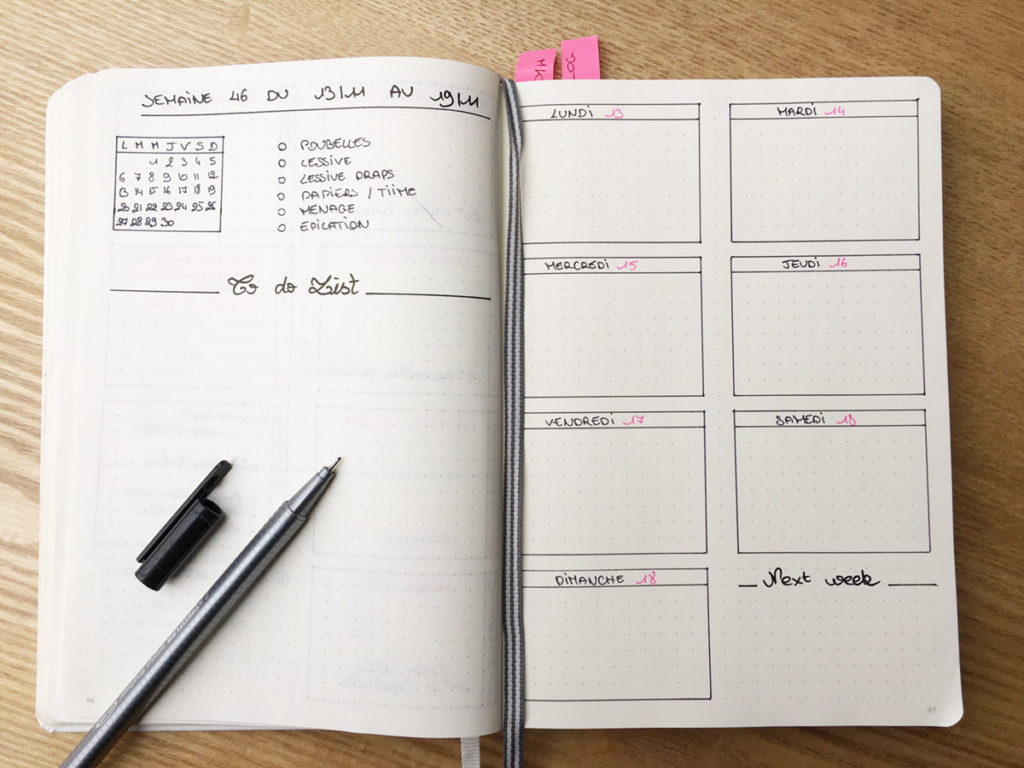 SEMAINE 46 DU 13/11 AU 19/11
L M M J V S D
1 2 3 4 5
6 7 8 9 10 11 12
13 14 15 16 17 18 19
20 21 22 23 24 25 26
27 28 29 30
POUBELLES
LESSIVE
LESSIVE DRAPS
PAPIERS / TIIME
MENAGE
EPILATION
To do List
96
LOG
LUNDI 13
MARDI 14
MERCREDI 15
JEUDI 16
VENDREDI 17
SAMEDI 18
DIMANCHE 18
Next week
97